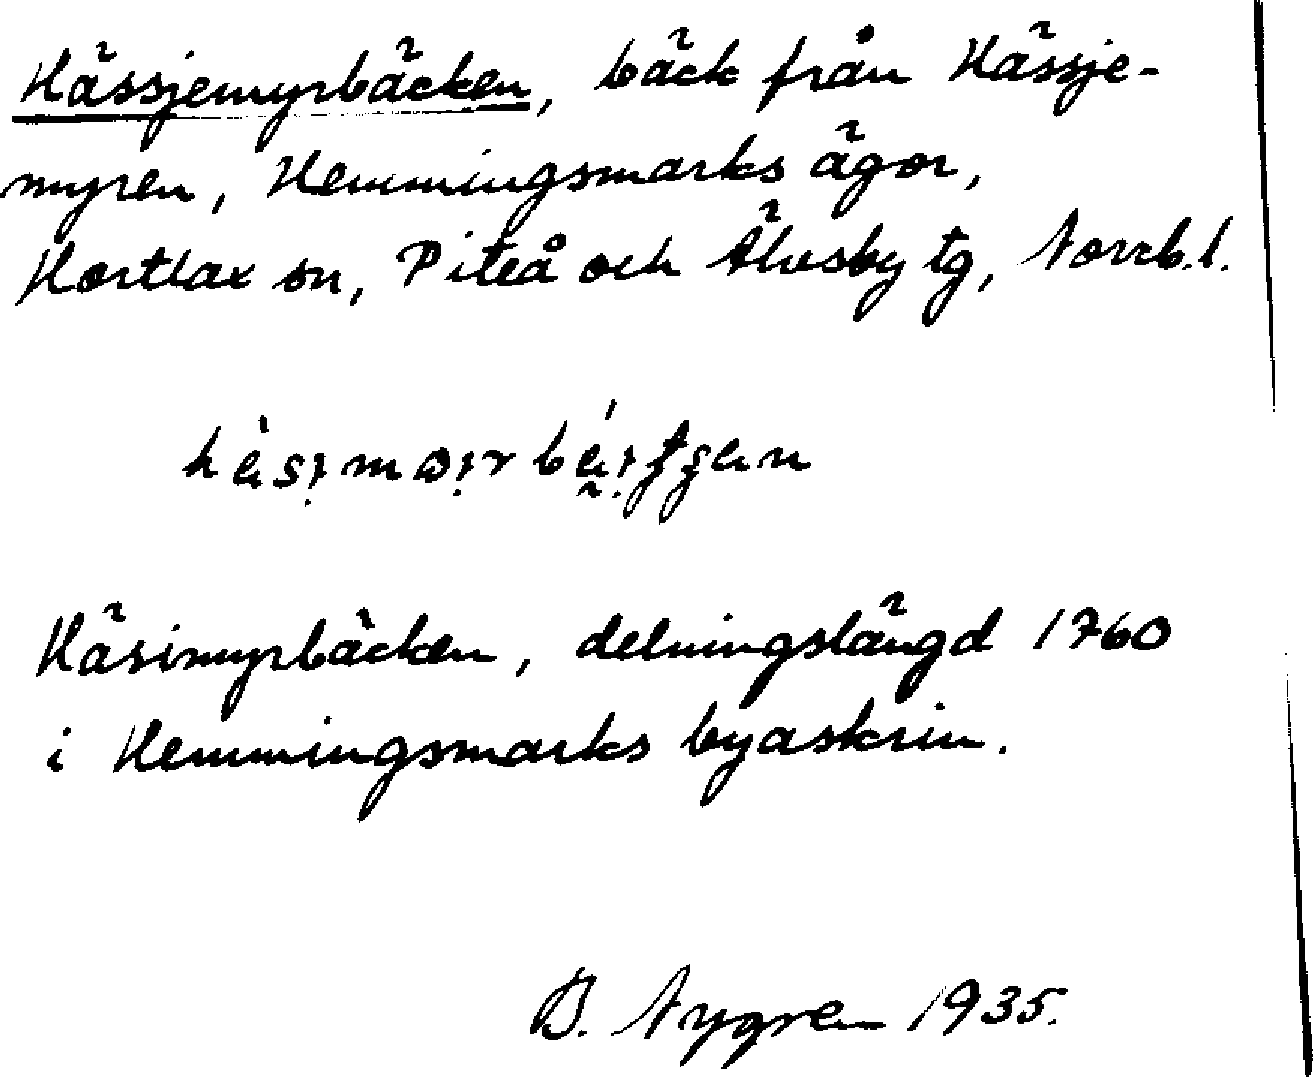 Hässjemyrbäcken, bäck från Hässje-
myren, Hemmingsmarks ägor,
Hortlax sn, Piteå och Älvsby tg, Norrb.l.
Häsimyrbäcken, delningslängd 1760
i Hemmingsmarks byaskrin.
B. Nygren 1935.